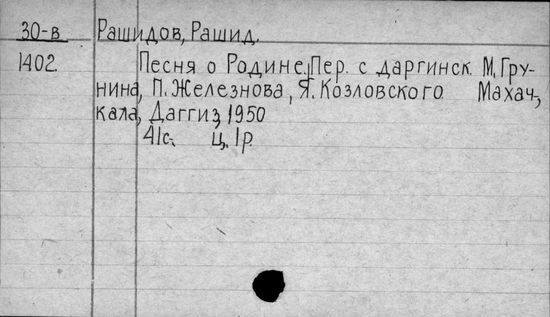 30-в Рашидов, Рашид.
1402. Песня о Родине. Пер. с даргинск. М. Гру-
нина, П. Железнова, Я. Козловского. Махач-
кала, Даггиз, 1950
41с. Ц. 1р.